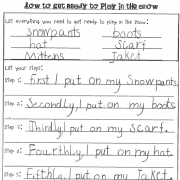 How to get Ready to Play in the Snow
List everything you need to get ready to play in the snow:
snowpants boots
hat scarf
Mittens Jaket
List your steps:
Step 1: First, I put on my Snowpants,
Step 2: Secondly, I put on my boots
Step 3: Thirdly, I put on my scarf.
Step 4: Fourthly, I put on my hat.
Step 5: Fifthly, I put on my Jaket.